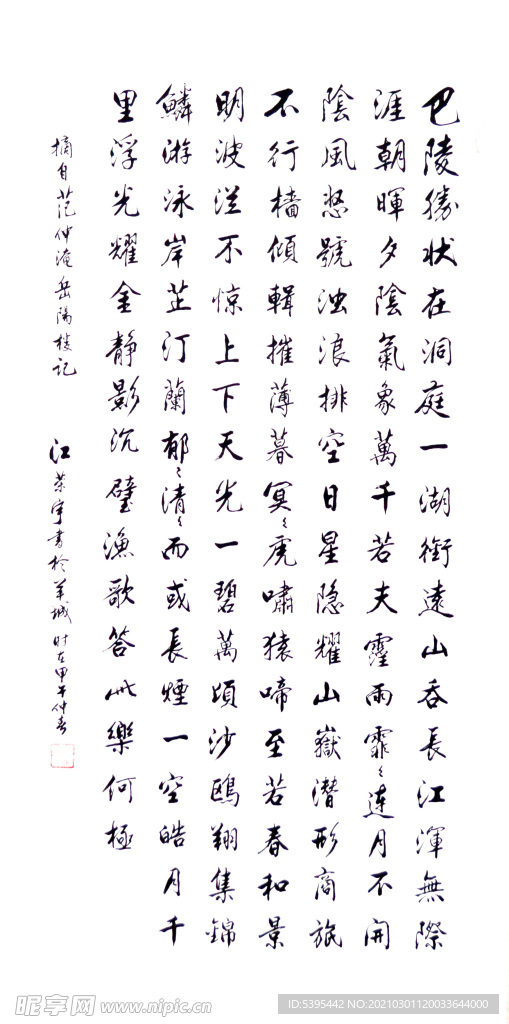 巴陵勝状在洞庭一湖銜遠山吞長江渾無際
涯朝暉夕陰氣象萬千若夫霪雨霏々連月不開
陰風怒號浊浪排空日星隐耀山嶽潛形商旅
不行檣傾輯摧薄暮冥々虎嘯猿啼至若春和景
明波不惊上下天光一碧萬頃沙鷗翔集錦
鱗游泳岸芷汀蘭郁々清々而或長煙一空皓月千
里浮光耀金静影沉璧漁歌答此樂何極
摘自范仲淹岳陽楼记
江荣宇書於羊城时在甲午仲春
昵享网 www.nipic.cn
ID:5395442 NO:20210301120033644000